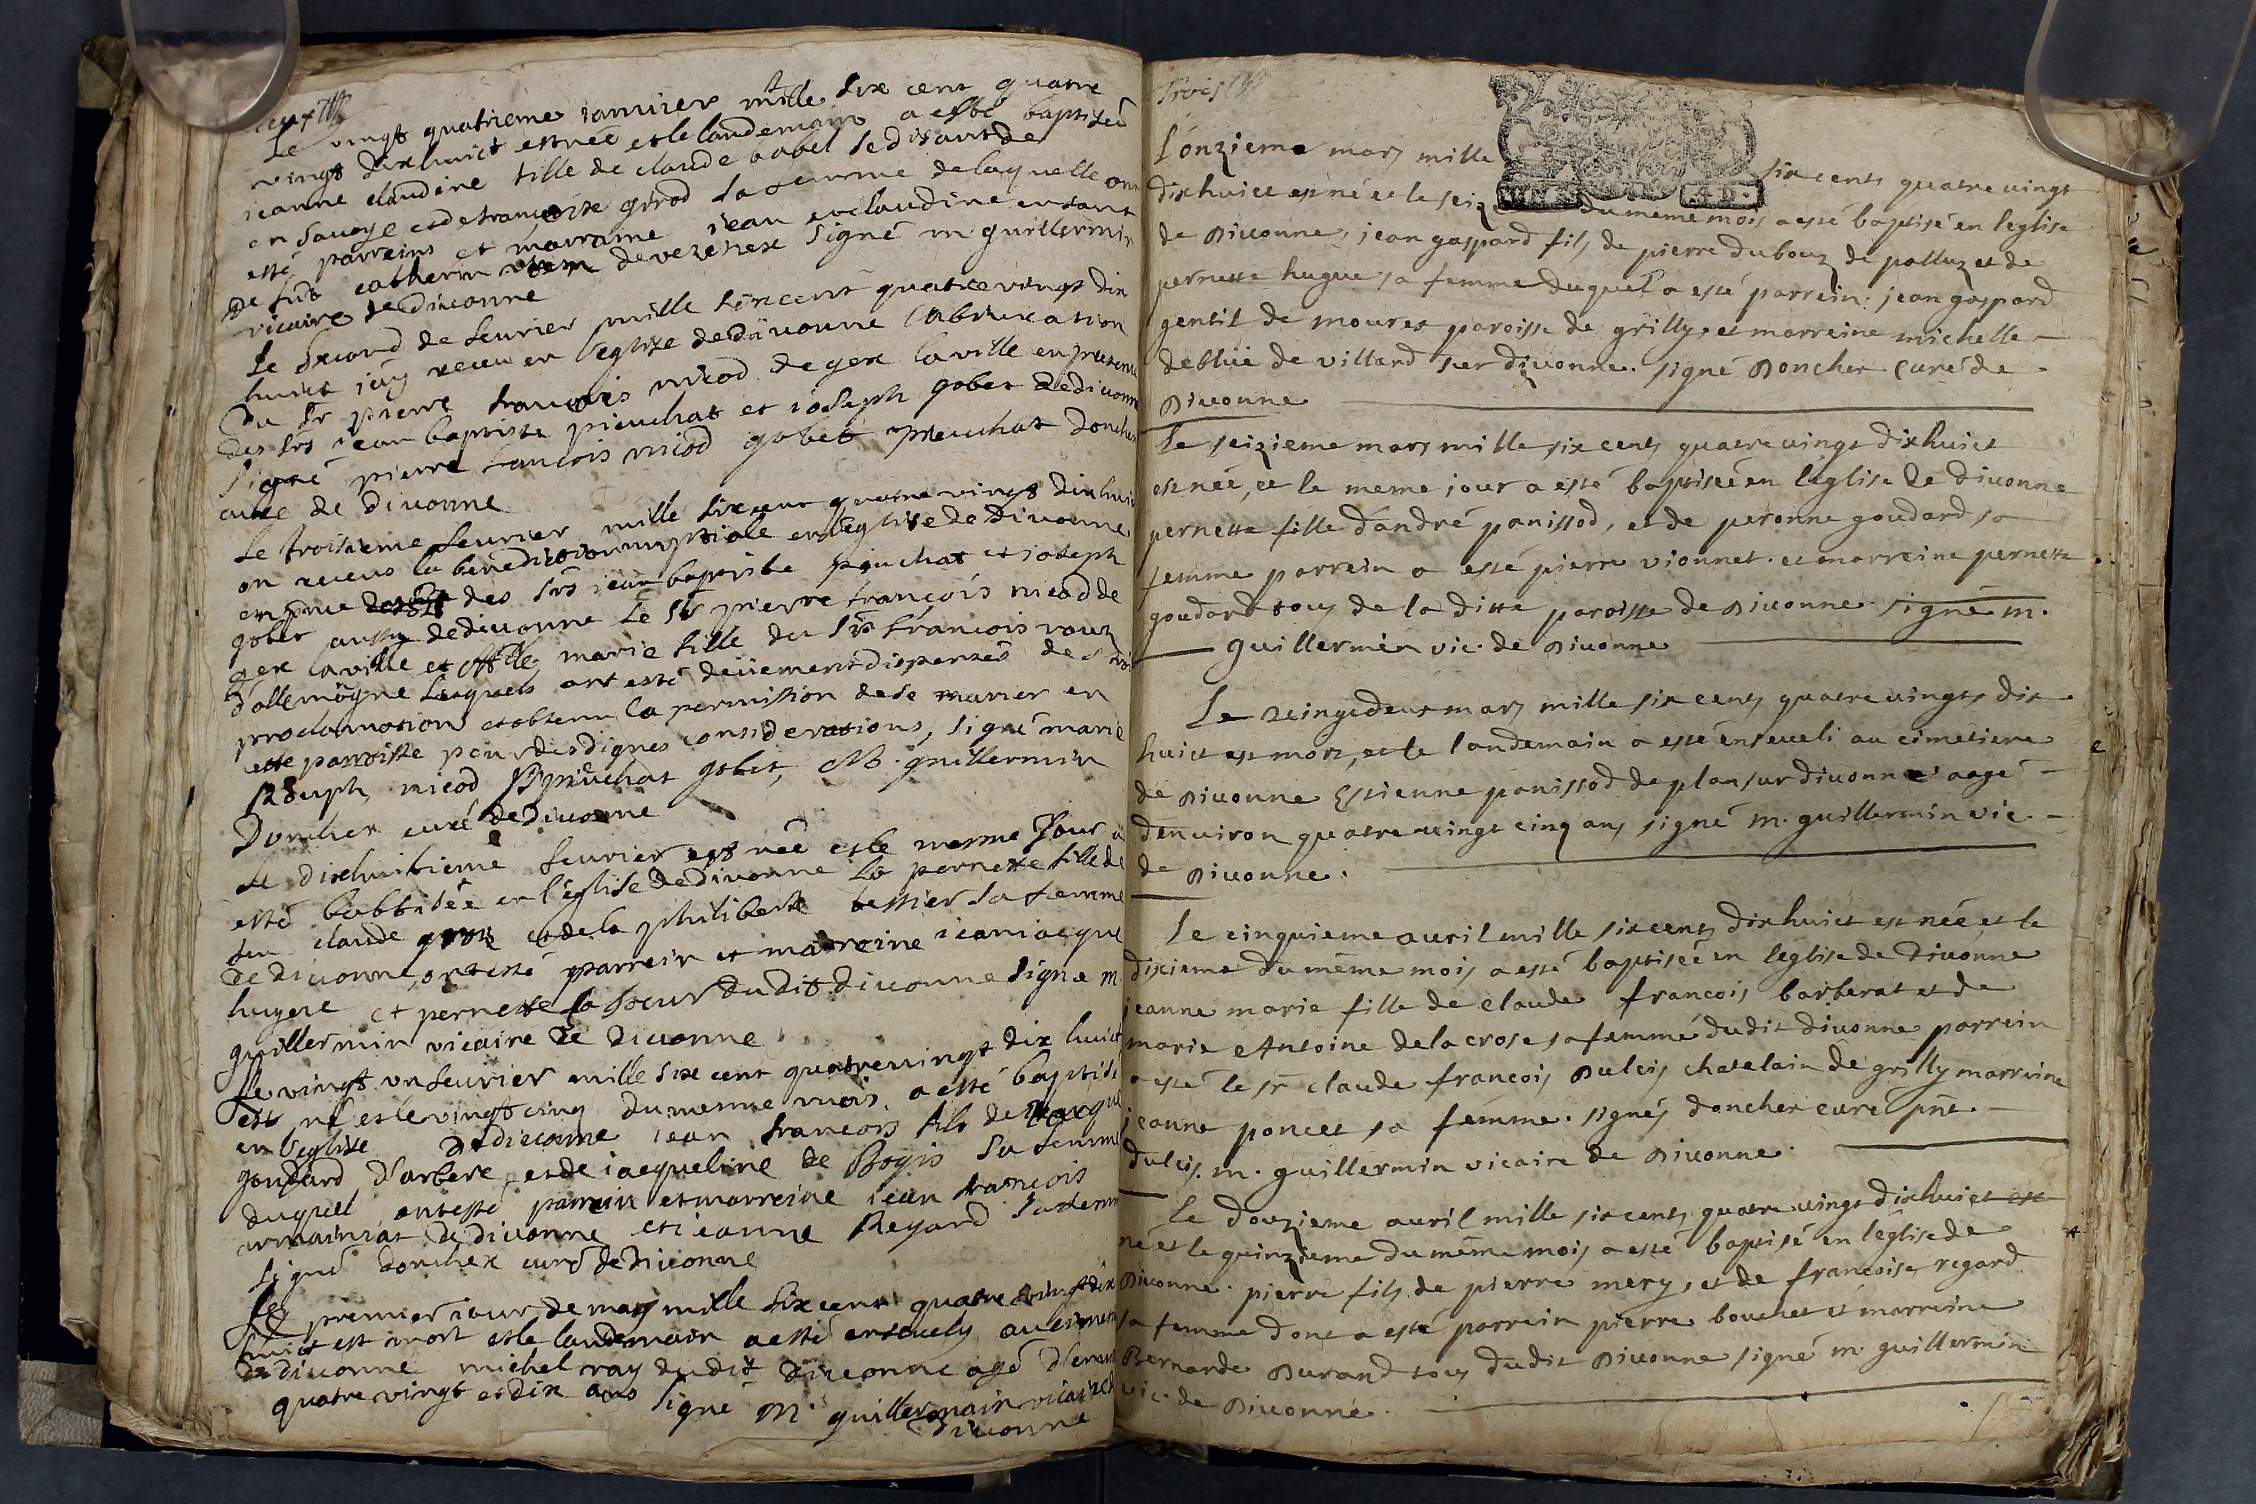 Le vingt quatrieme ianvier mille six cent quatre
vingt dix huict est née et le landemain a esté baptiseé
ieanne claudine fille de claude babel se disant de
en Savoye et de françoise girod sa femme de laquelle ont
esté parreins et marraine iean et claudine enfant
de fut catherin de vezenex signé m guillermin
vicaire de diuonne
Le second de feurier mille six cent quatre vingt dix
huict iay receu en l'eglise de diuonne l'abiuration
du Sr pierre françois nicod de gex la ville en presence
des Srs iean baptiste piuchat et ioseph gobet de diuonne
signé pierre francois nicod gobet piuchat doncher
curé de diuonne
Le troisieme feurier mille six cent quatre vingt dix huict
on receus la benediction nuptiale en l'eglise de diuonne
en pnce des Srs iean baptiste piuchat et ioseph
gobet aussy de diuonne le Sr pierre françois nicod de
gex la ville et marie fille du Sr françois roux
d'allemogne lesquels ont esté deüement dispensés de
proclamations et obtenu la permission de se marier en
cette parroisse pour des dignes considerations, signé marie
nicod piuchat gobet, M. guillermin
Doncher curé de Diuonne
Le dixhuitieme feurier est née et le mesme Jour a
esté babtisée en l'eglise de diuonne pernette fille de
feu claude et de la philiberte sa femme
de diuonne, ont esté parrein et marroine iean iacque
hugue et pernette sa soeur dudit diuonne signé m.
guillermin vicaire de Diuonne
Le vingt un feurier mille six cent quatre vingt dix huict
est né et le vingt cinq du mesme mois a esté baptisé
en l'eglise de diuonne iean francois fils de iacque
goudard d'arbere et de iacqueline de Bogis sa femme
duquel ont esté parrein et marreine iean françois
de diuonne et ieanne Regard sa femme
signé doncher curé de diuonne
Le premier iour de mars mille six cent quatre vingt dix
huict est mort et le landemain a esté enseuely au cimetiere
de diuonne michel ray dudit diuonne agé d'enuiron
quatre vingt et dix ans signé M. guillermain vicaire de
diuonne
Trois
L'onzieme mars mille six cents quatre uingt
dix huict est né et le seiz du meme mois a esté baptisé en leglise
de Diuonne, jean gaspard fils de pierre dubouz de palluz et de
pernette hugue sa femme duquel a esté parrein: jean gaspard
gentil de mourex paroisse de grilly, et marreine michelle
deblüe de villard sur diuonne. signé Doncher Curé de
Diuonne
Le seizieme mars mille six cents quatre uingt dix huict
est née, et le meme jour a esté baptisée en l'eglise de diuonne
pernette fille d'andré panissod, et de peronne goudard sa
femme parrein a esté pierre vionnet. et marreine pernette
goudard tous de la ditte paroisse de Diuonne. signé m.
guillermin vic. de Diuonne
Le veingtdeux mars mille six cents quatre uingts dix
huict est mort, et le landemain a esté enseueli au cimetiere
de Diuonne Estienne panissod de plan sur diuonne aagé
d'enuiron quatre uingt cinq ans, signé m. guillermin vic.
de Diuonne.
Le cinquieme auril mille six cents dix huict est née et le
dixieme du même mois a esté baptisée en l'eglise de diuonne
jeanne marie fille de claude francois barberat et de
marie Antoine delacrose sa femme dudit diuonne parrein
a esté le sr. claude françois Dulcis chatelain de grilly marreine
jeanne poncet sa femme. signés doncher curé pñt.
dulcis. m. guillermin vicaire de Diuonne.
Le douzieme auril mille six cents quatre uingt dix huict est
né et le quinzieme du même mois a esté baptisé en l'eglise de
Diuonne. pierre fils de pierre mery, et de françoise regard
sa femme dont a esté parrein pierre bouchet et marreine
Bernarde Durand tous dudit Diuonne signé m. guillermin
vic. de Diuonne.